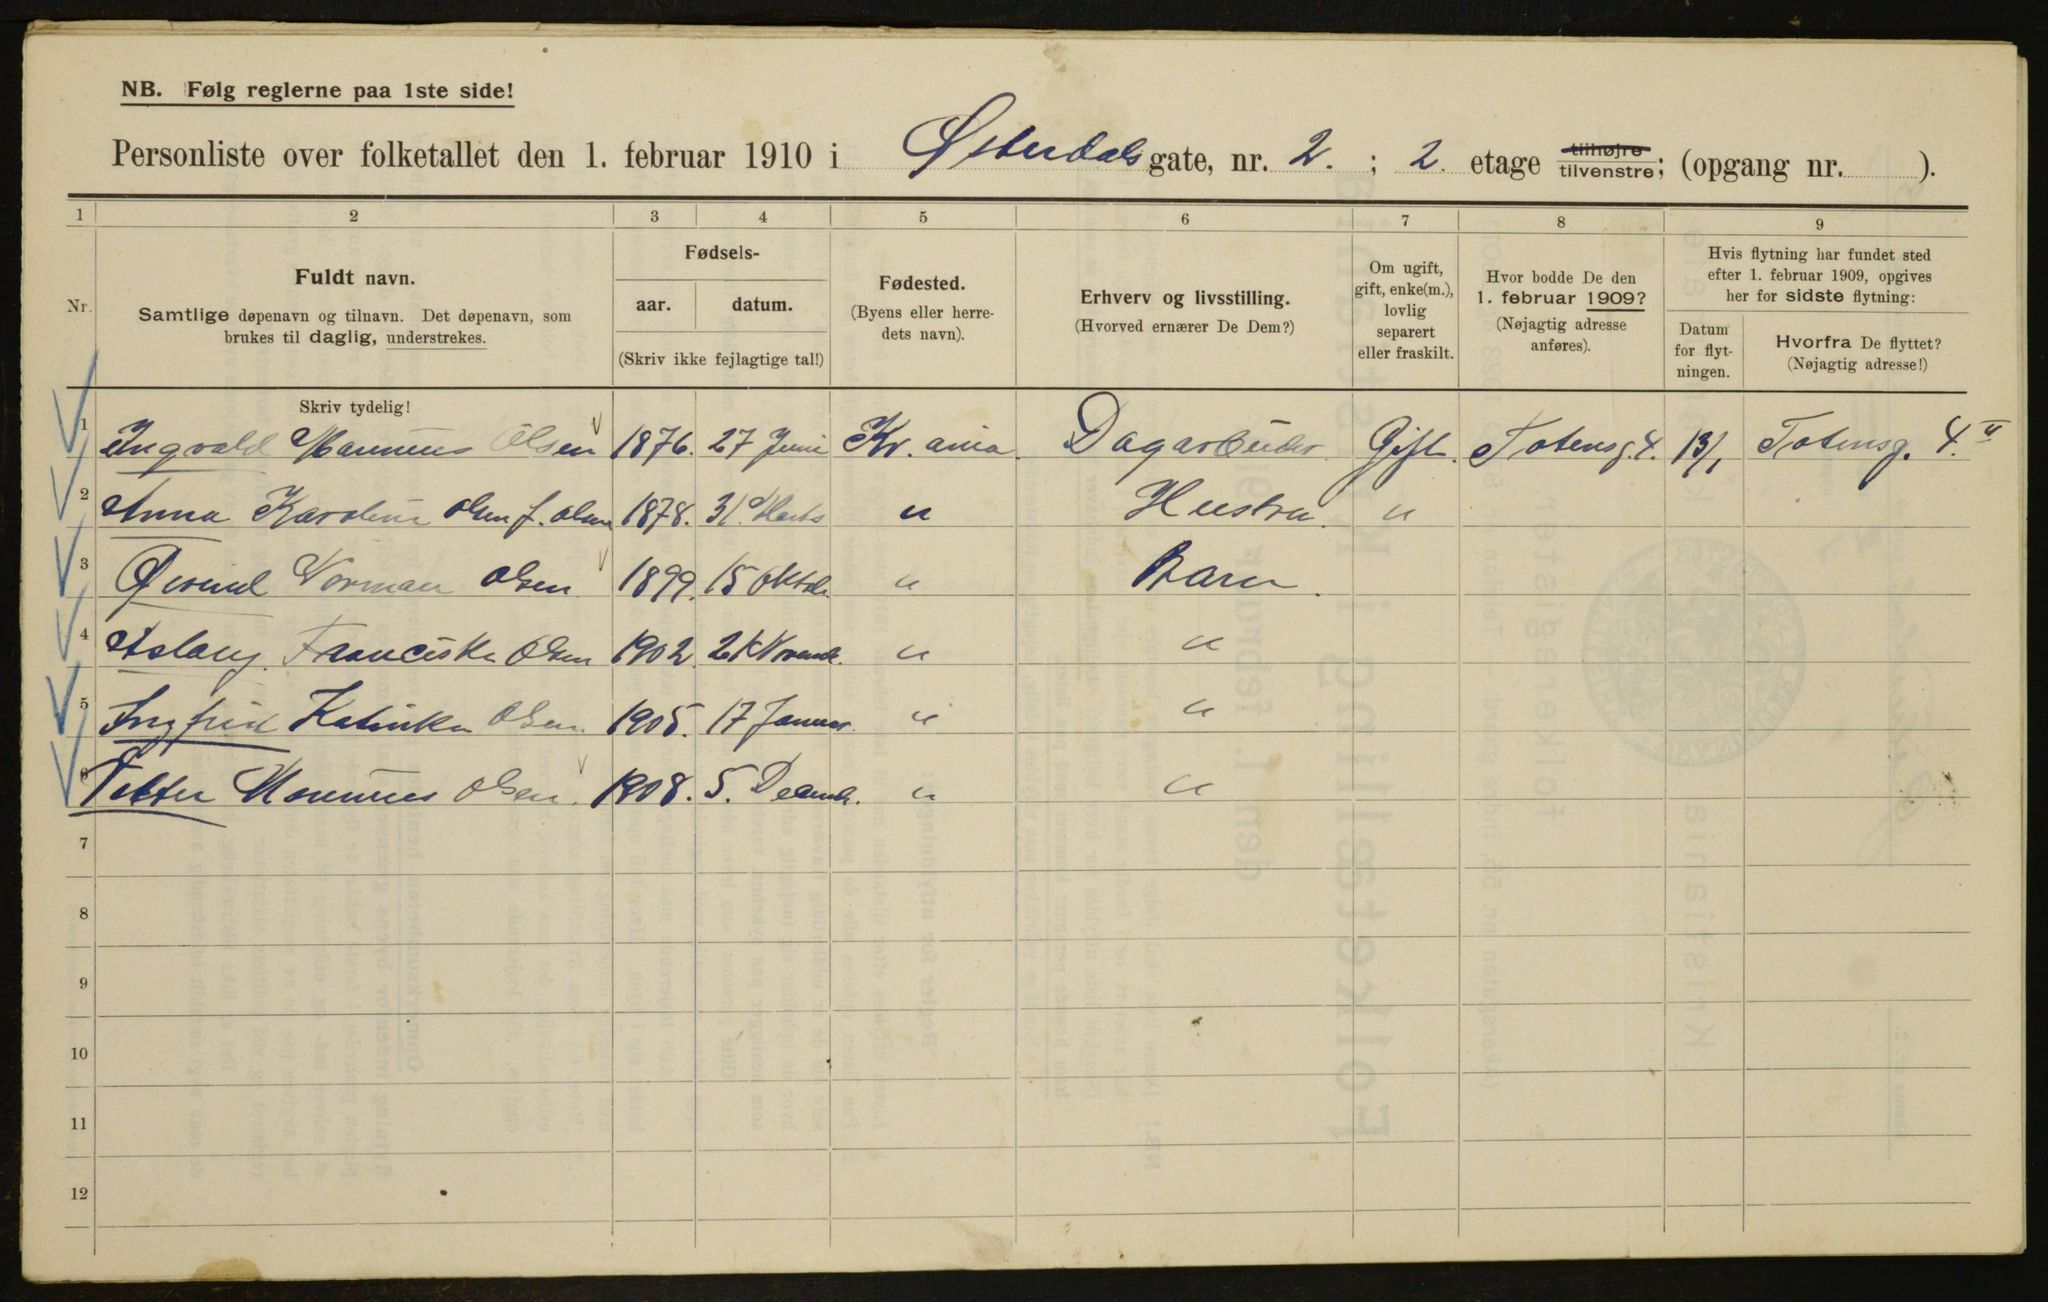 NB. Følg reglerne paa 1ste side!
Personliste over folketallet den 1. februar 1910 i Østerdals gate, nr. 2. ; 2. etage tilhøjre tilvenstre; (opgang nr. ).
1 2 3 4 5 6 7 8 9
Nr.
Fuldt navn.
Samtlige døpenavn og tilnavn. Det døpenavn, som
brukes til daglig, understrekes.
Fødsels-
aar. datum.
(Skriv ikke fejlagtige tal!)
Fødested.
(Byens eller herre-
dets navn).
Erhverv og livsstilling.
(Hvorved ernærer De Dem?)
Om ugift,
gift, enke(m.),
lovlig
separert
eller fraskilt.
Hvor bodde De den
1. februar 1909?
(Nøjagtig adresse
anføres).
Hvis flytning har fundet sted
efter 1. februar 1909, opgives
her for sidste flytning:
Datum
for flyt-
ningen.
Hvorfra De flyttet?
(Nøjagtig adresse!)
Skriv tydelig!
1 Ingvald Olsen 1876. 27 Juni Kr.ania Dagarbeider. Gift. Totensg. 4. 13/1 Totensg. 4. II
2 Anna Karoline Olsen f. Olsen 1878. 31. Marts " Hustru. "
3 Øivind Norman Olsen 1899. 15 Oktbr. " Barn.
4 Aslaug Franciska Olsen 1902. Novembr. " "
5 Ingfrid Katinka Olsen. 1905. 17 Januar. " "
6 Petter Olsen. 1908. 5. Decembr. " "
7
8
9
10
11
12